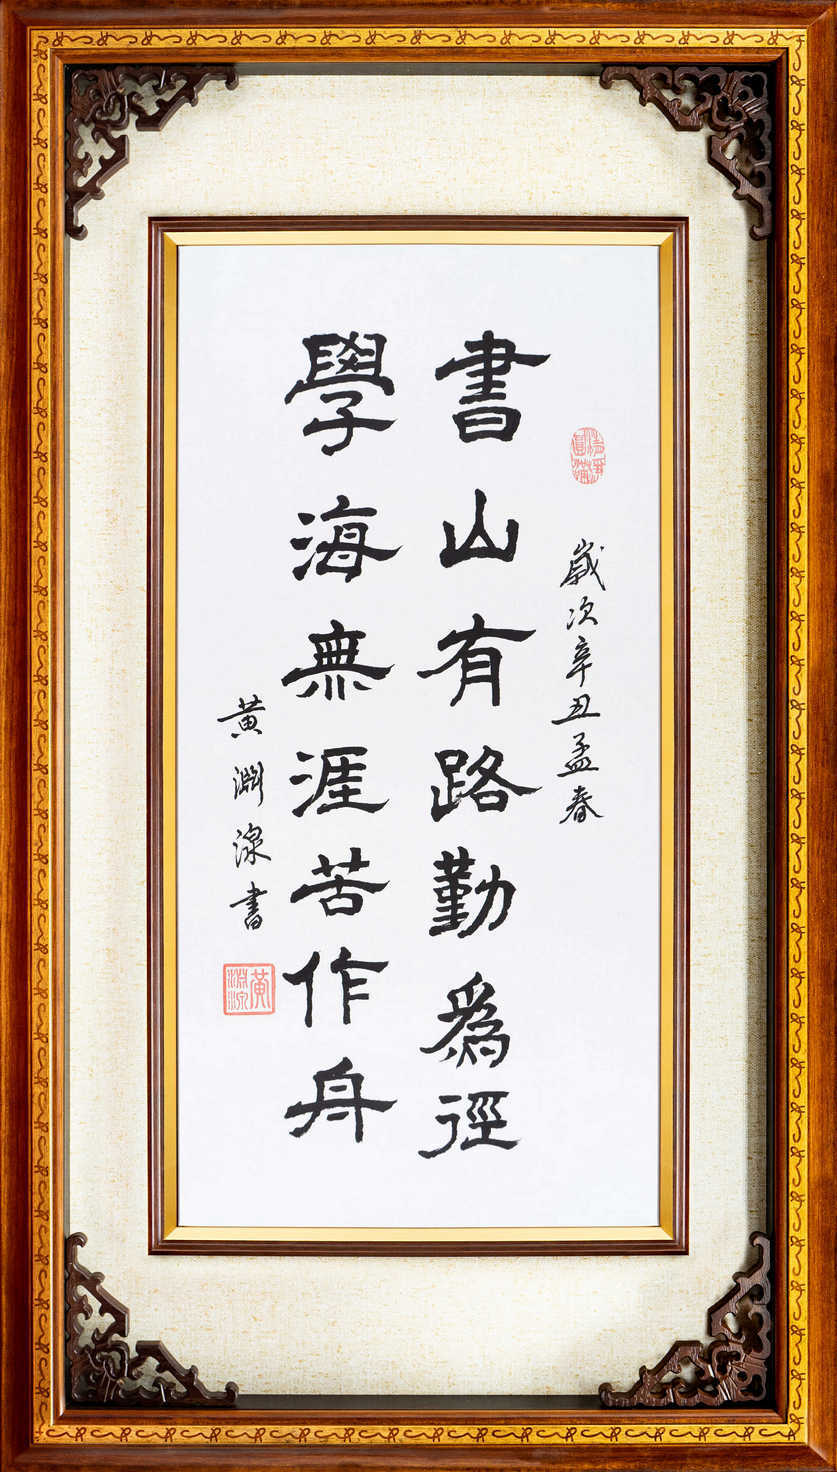 歲次辛丑孟春
書山有路勤爲徑
學海無涯苦作舟
黃淵湶書